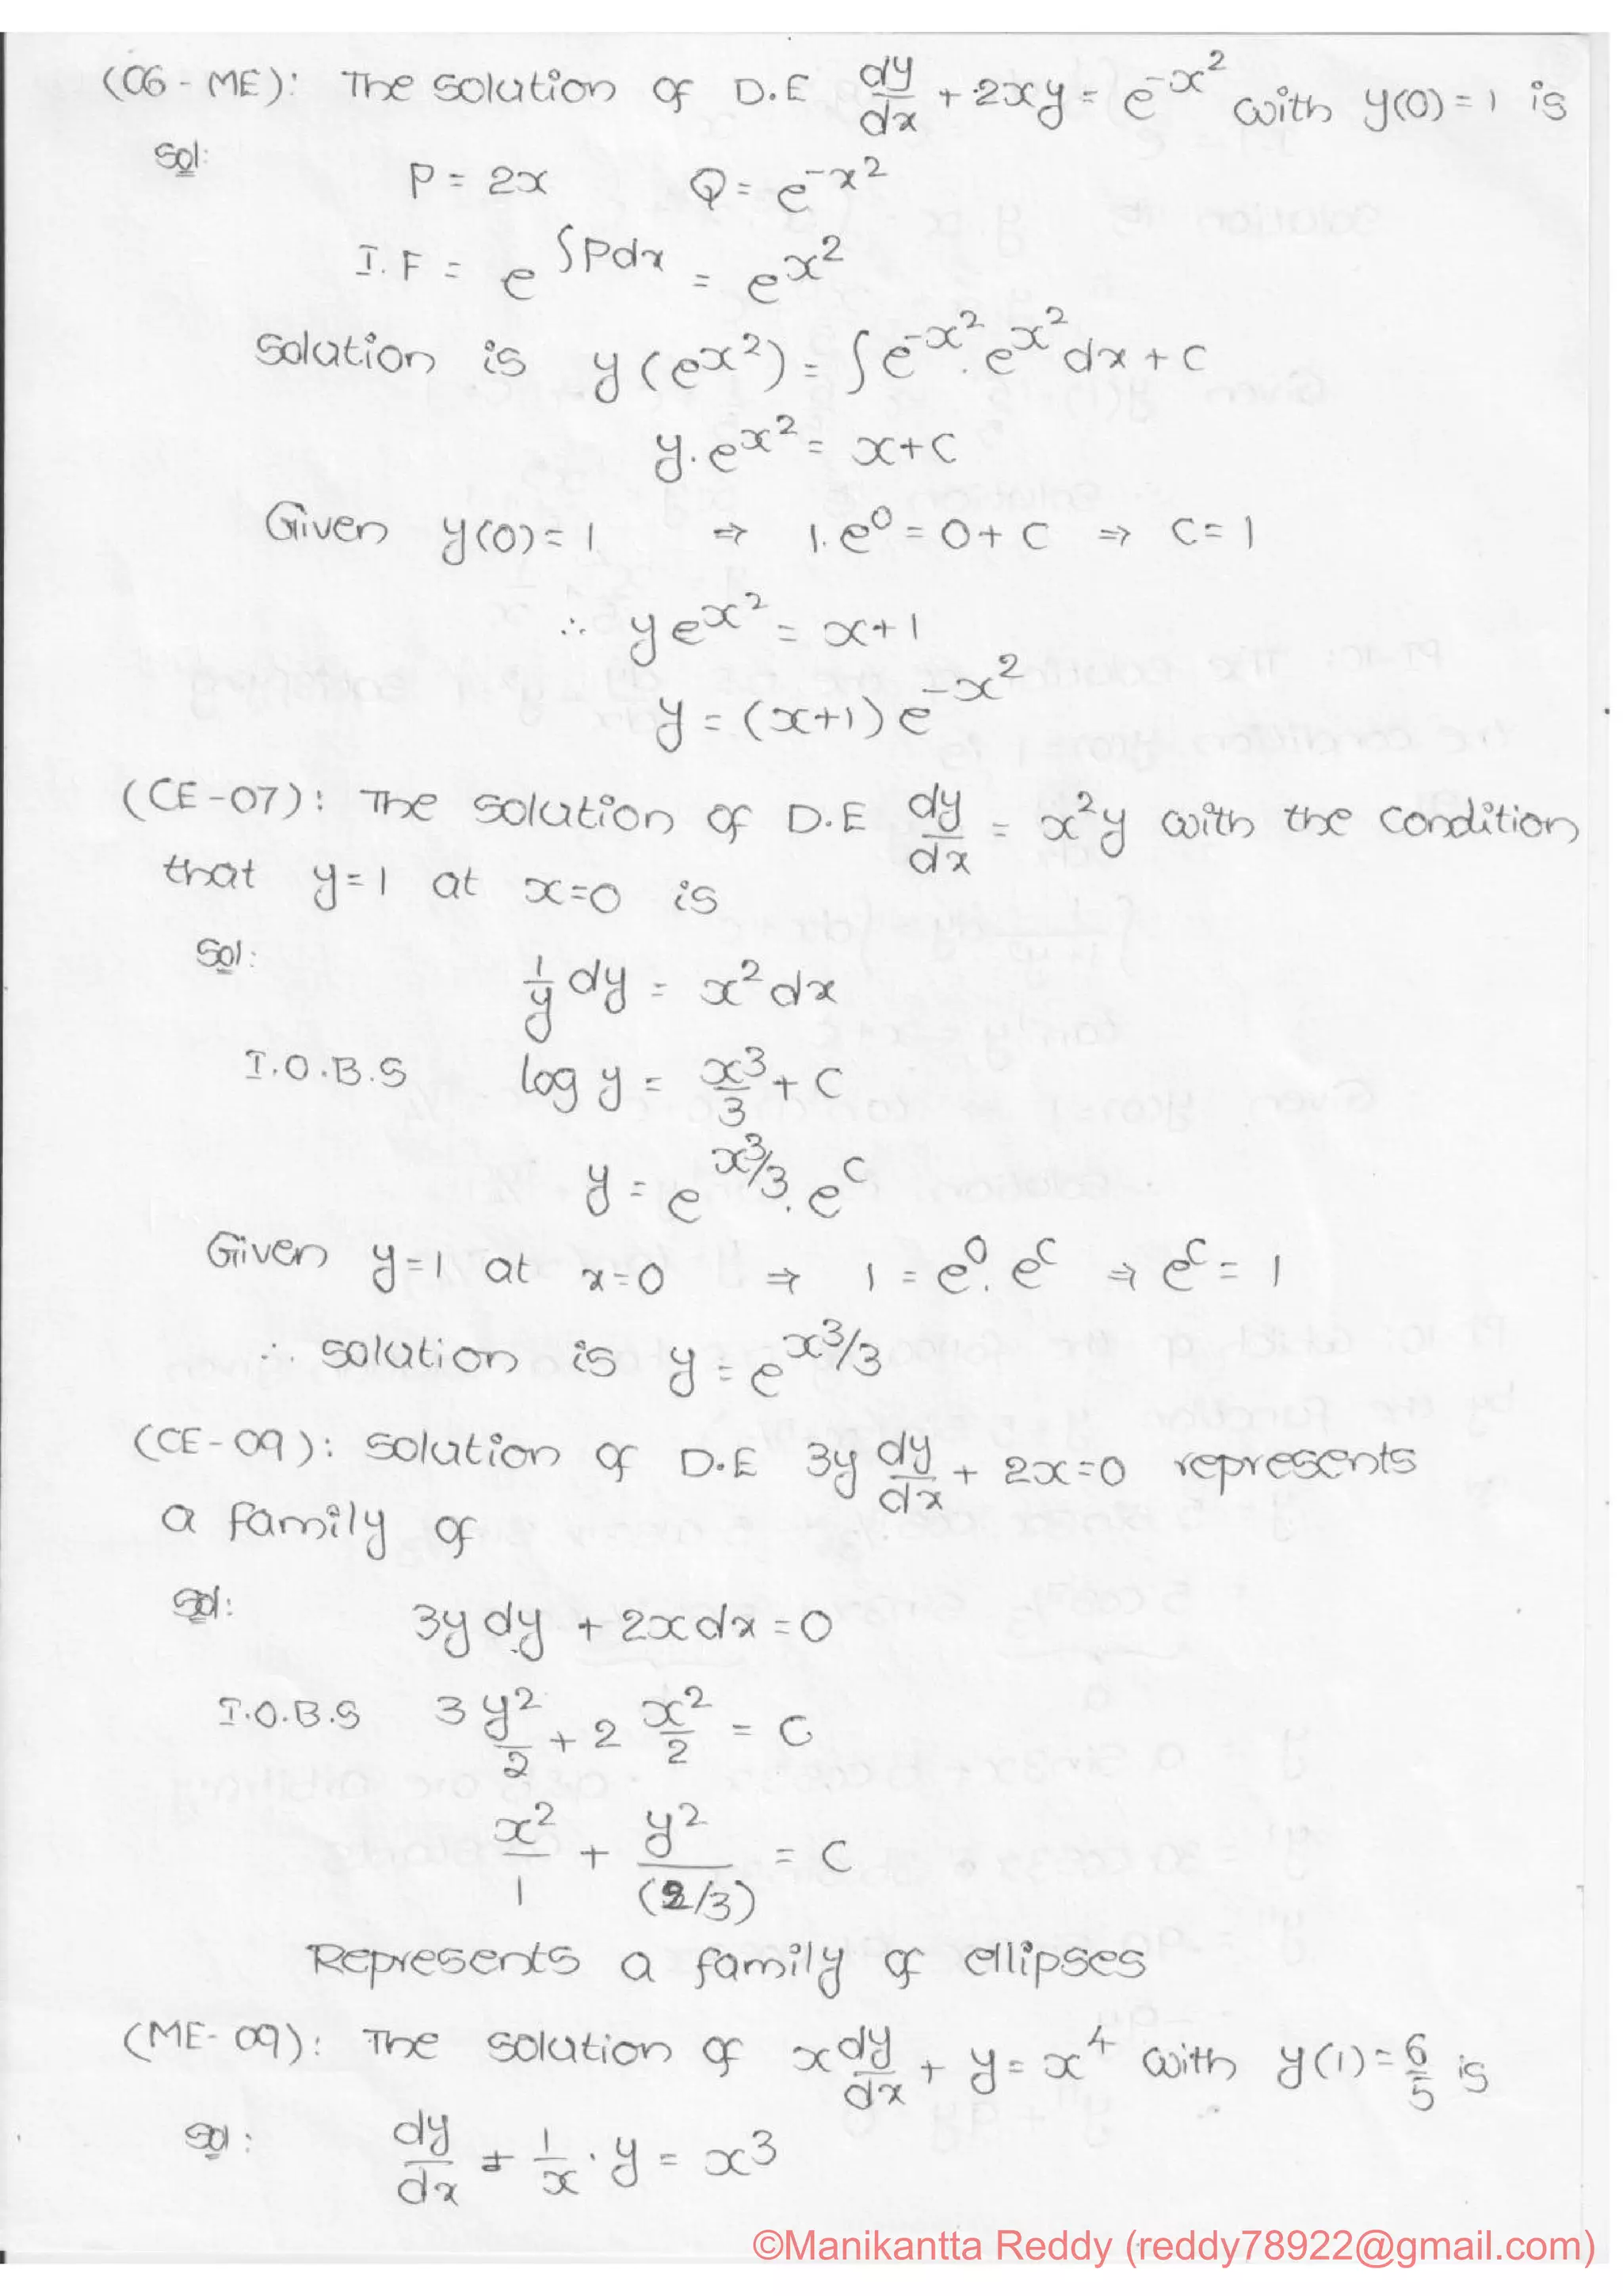 (06 - ME): The solution of D.E dy/dx + 2xy = e^{-x^2} with y(0) = 1 is
Sol:
P = 2x Q = e^{-x^2}
I.F = e^{∫Pdx} = e^{x^2}
Solution is y(e^{x^2}) = ∫e^{-x^2}.e^{x^2}dx + C
y.e^{x^2} = x+C
Given y(0) = 1 ⇒ 1.e^0 = 0 + C ⇒ C = 1
∴ ye^{x^2} = x+1
y = (x+1)e^{-x^2}
(CE-07): The solution of D.E dy/dx = x^2y with the condition
that y=1 at x=0 is
Sol:
1/y dy = x^2dx
I.O.B.S log y = x^3/3 + C
y = e^{x^3/3}.e^C
Given y=1 at x=0 ⇒ 1 = e^0.e^C ⇒ e^C = 1
∴ solution is y = e^{x^3/3}
(CE-09): Solution of D.E 3y dy/dx + 2x=0 represents
a family of
Sol:
3y dy + 2x dx = 0
I.O.B.S 3 y^2/2 + 2 x^2/2 = C
x^2/1 + y^2/(2/3) = C
Represents a family of ellipses
(ME-09): The solution of x dy/dx + y = x^4 with y(1) = 6/5 is
Sol:
dy/dx + 1/x . y = x^3
©Manikantta Reddy (reddy78922@gmail.com)